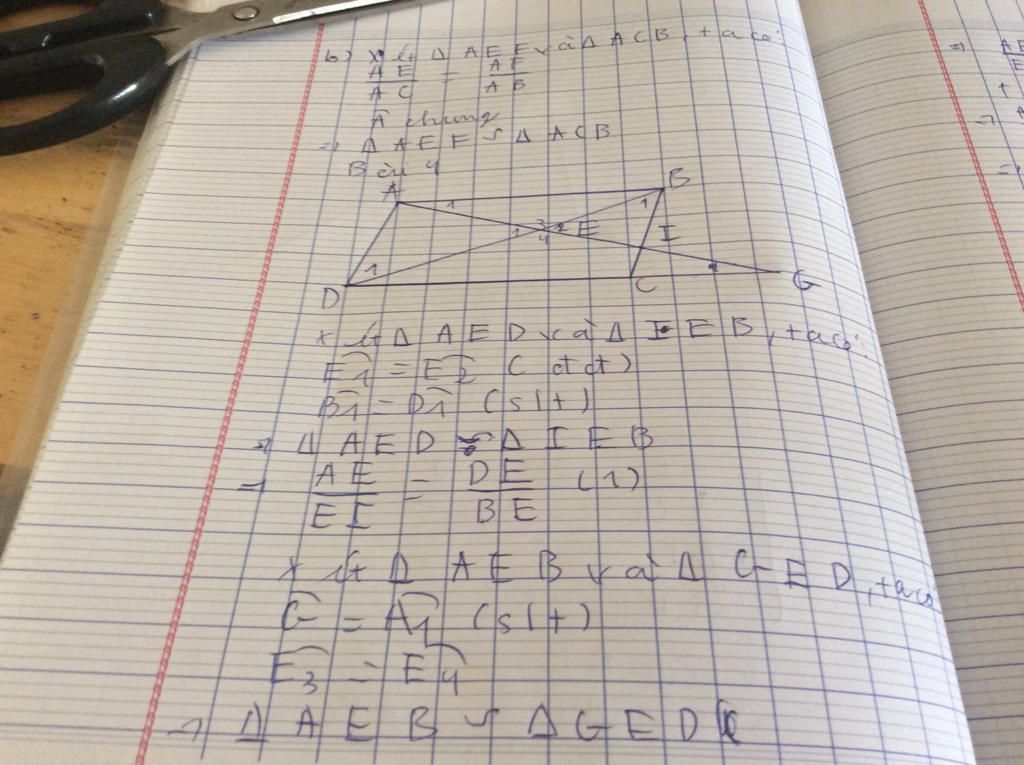 b) xét Δ AEF và Δ ACB, ta có:
AE/AC = AF/AB
Â chung
=> Δ AEF ∽ Δ ACB
Bài 4
A 1 B 1
1 3 2 4 E I
D 1 C G
xét Δ AED và Δ IEB, ta có:
Ê1 = Ê2 (đđ)
B̂1 = D̂1 (slt)
=> Δ AED ∽ Δ IEB
=> AE/EI = DE/BE (1)
xét Δ AEB và Δ GED, ta có
Ĝ = Â1 (slt)
Ê3 = Ê4
=> Δ AEB ∽ Δ GED